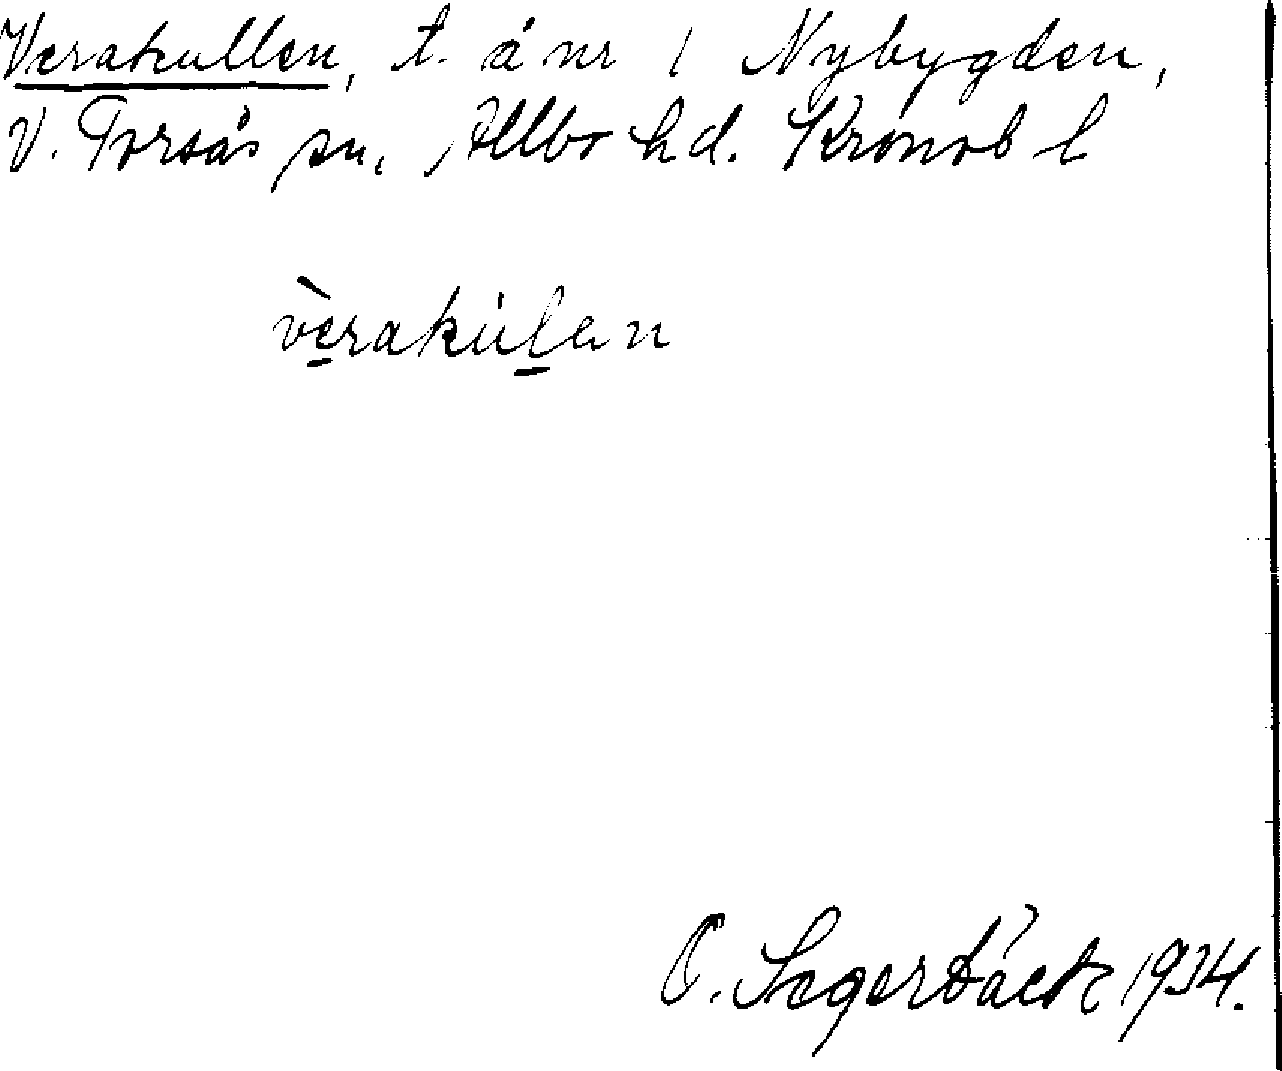 Verakullen, t. å nr 1 Nybygden,
V. Torsås sn, Allbo hd. Kronob l
vèrakúlen
O. Segerbäck 1934.